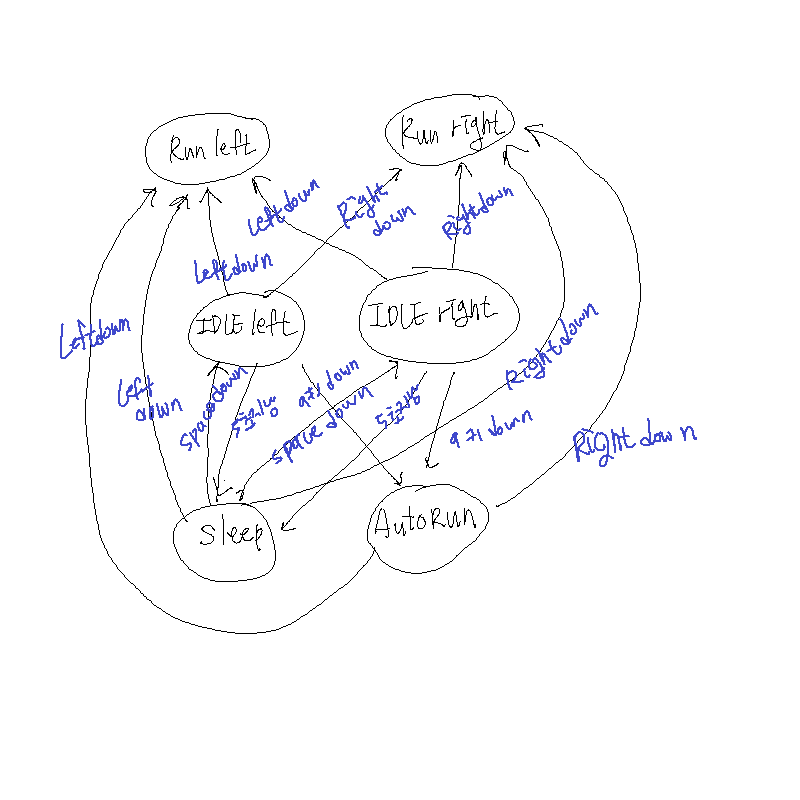 Run left
Run right
Left down
Right
down
Right down
Left down
IDLE left
IDLE right
Left down
Left
down
space down
5초시남
a키 down
space down
Right down
a키 down
Right down
Sleep
AutoRun